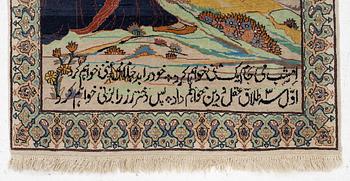 امشب می جام یکمنی خواهم کرد خود را بدو جام می غنی خواهم کرد
اول سه طلاق عقل و دین خواهم داد پس دختر رز را بزنی خواهم کرد